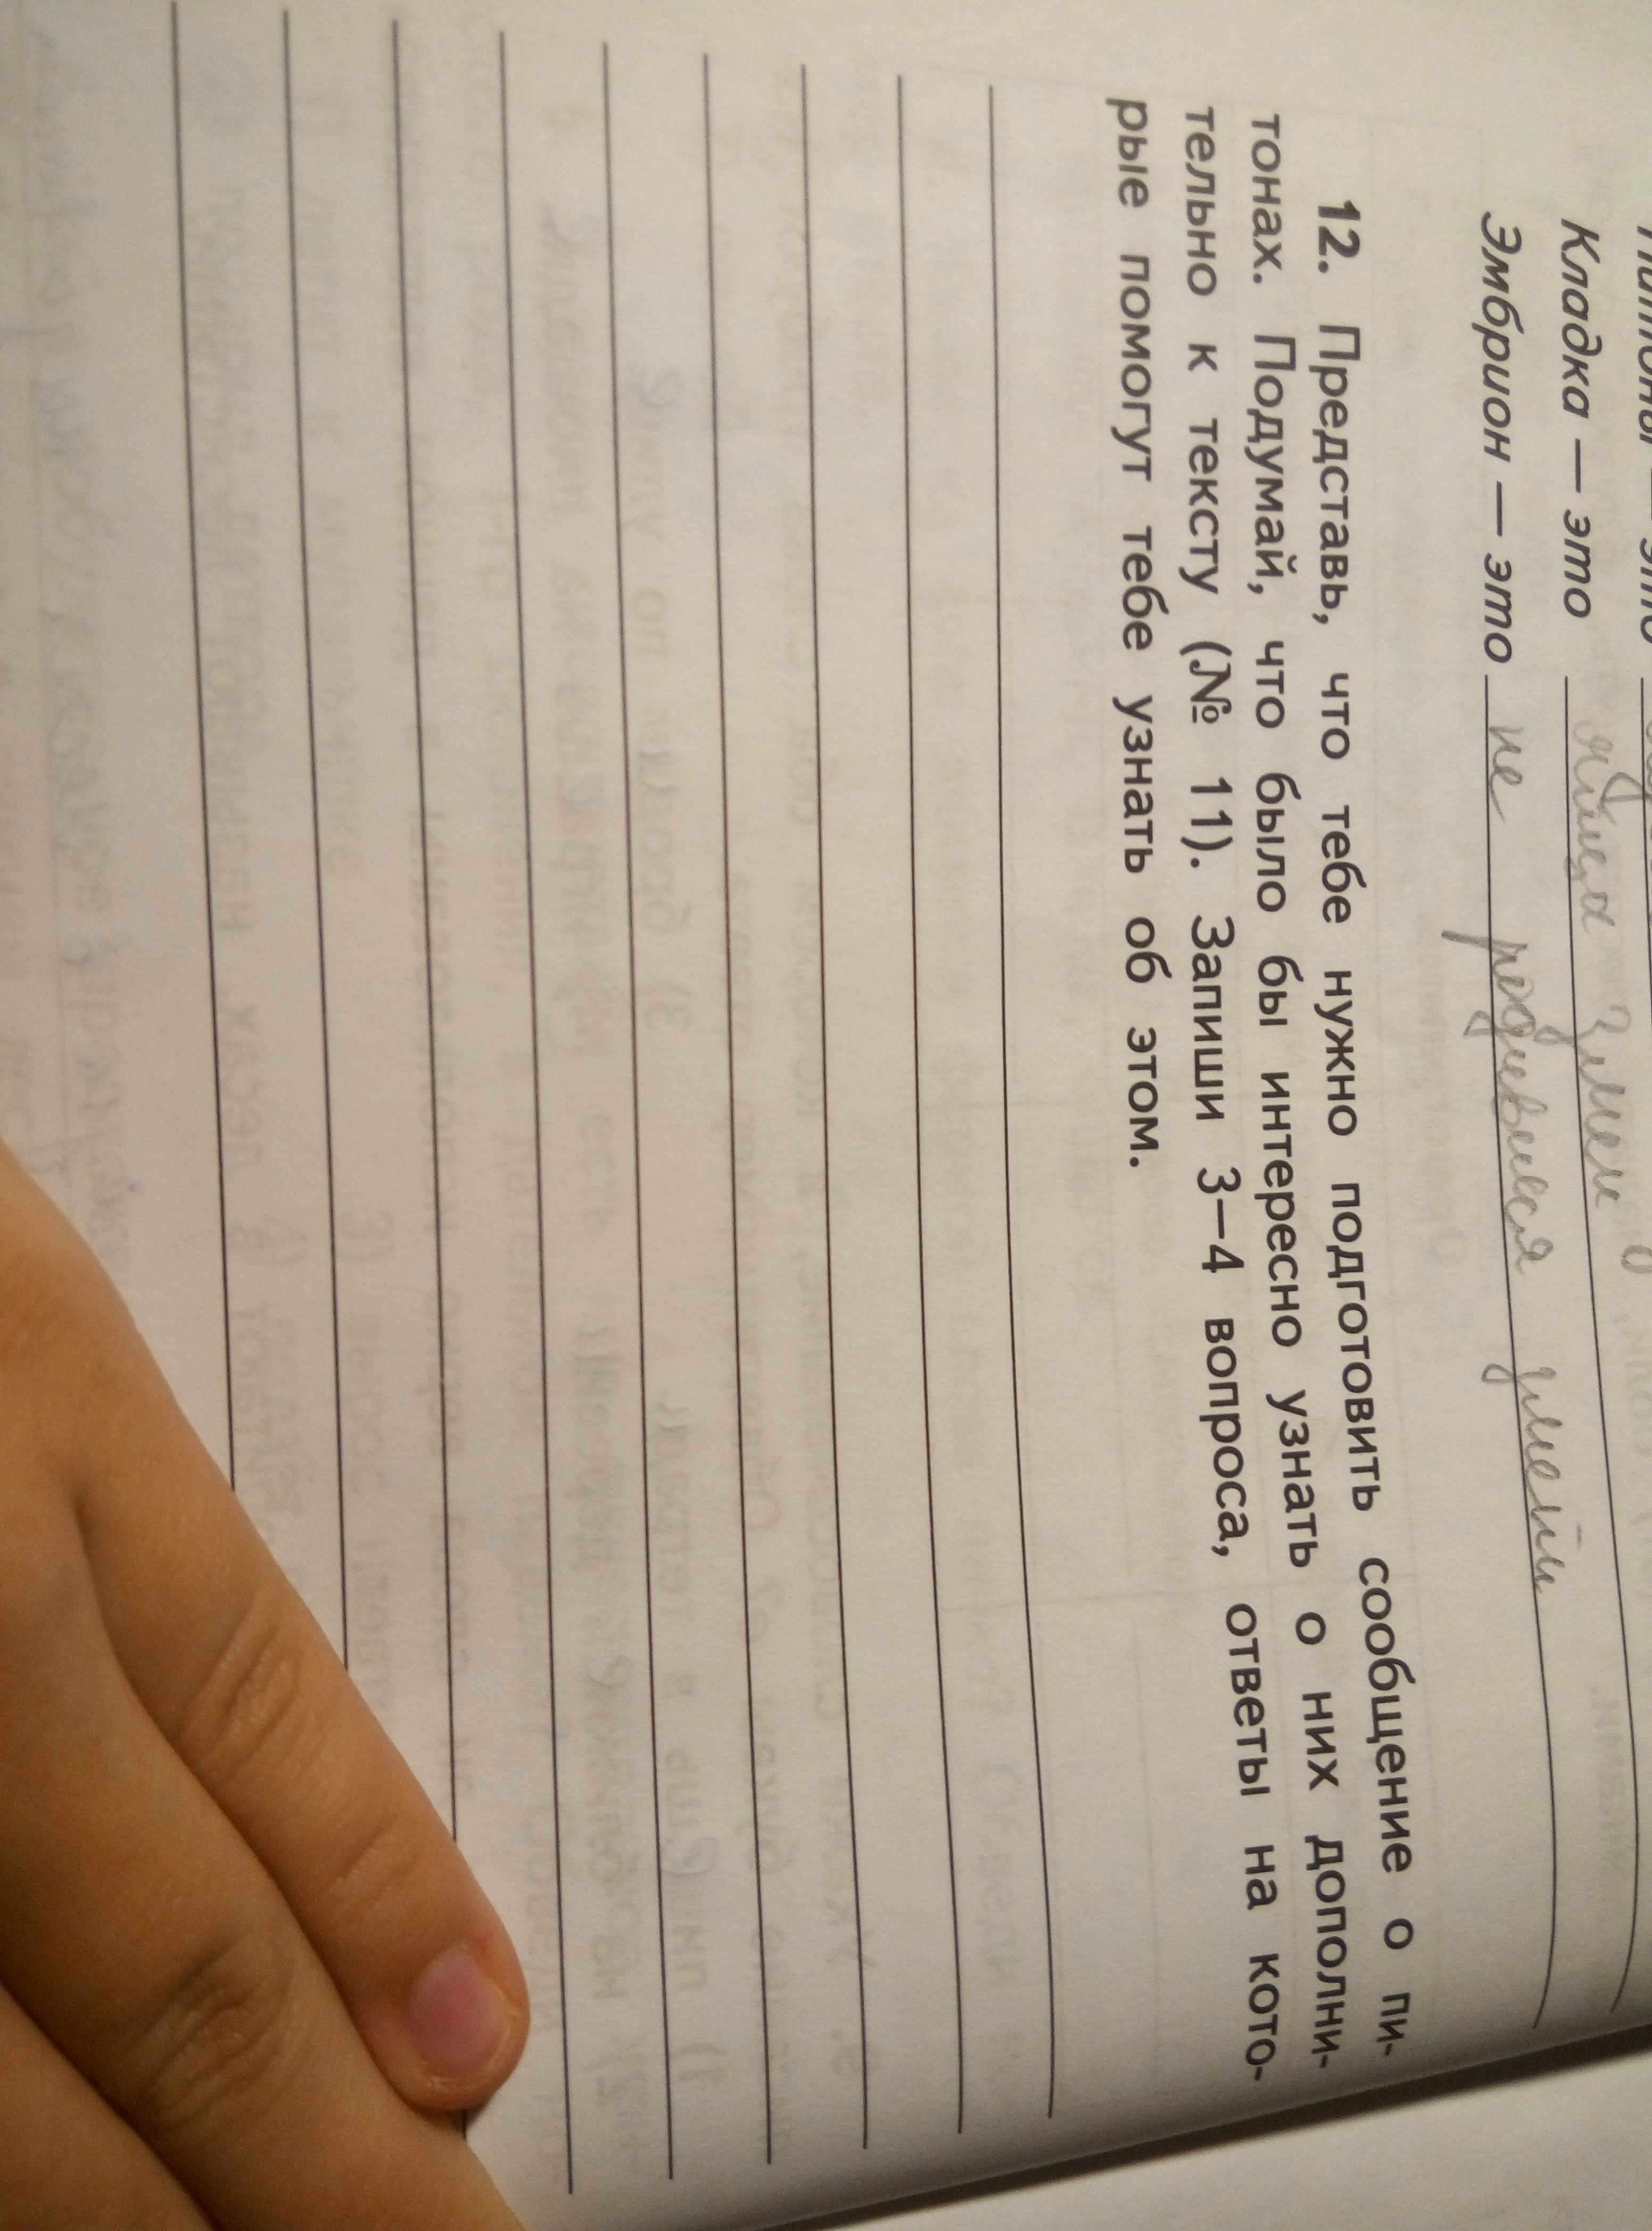 Кладка — это яйца змеи
Эмбрион — это не родившися змеи
12. Представь, что тебе нужно подготовить сообщение о пи-
тонах. Подумай, что было бы интересно узнать о них дополни-
тельно к тексту (№ 11). Запиши 3–4 вопроса, ответы на кото-
рые помогут тебе узнать об этом.